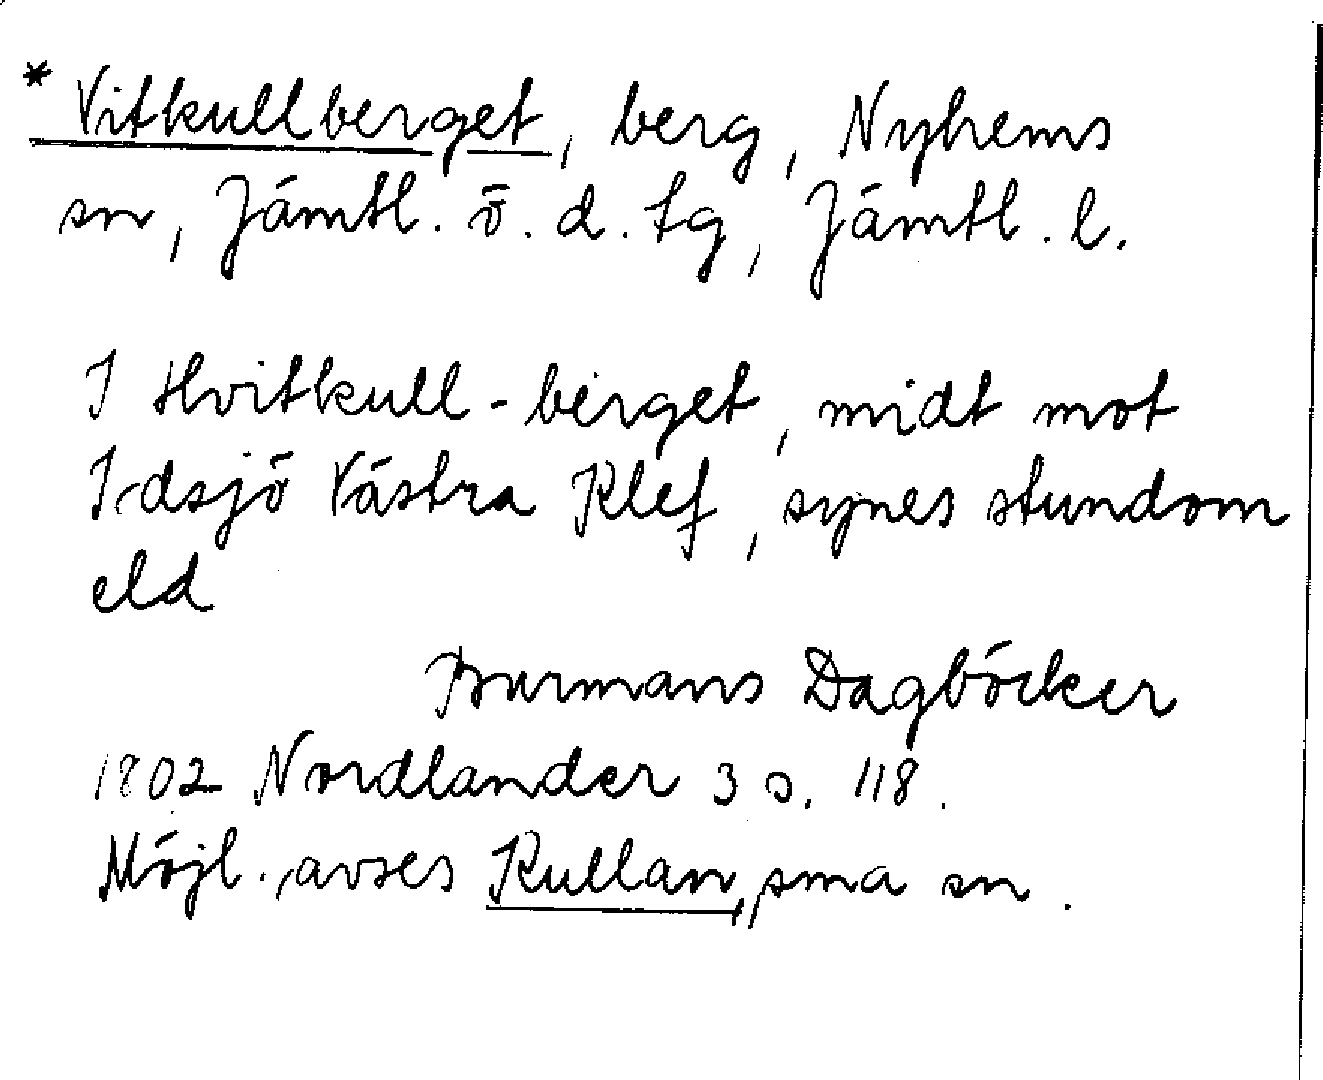 * Vitkullberget, berg, Nyhems
sn, Jämtl. ö. d. tg, Jämtl. l.
I Hvitkull-berget, midt mot
Idsjö Västra Klef, synes stundom
eld
Burmans Dagböcker
1802 Nordlander 3 s. 118.
Möjl. avses Kullan, sma sn.